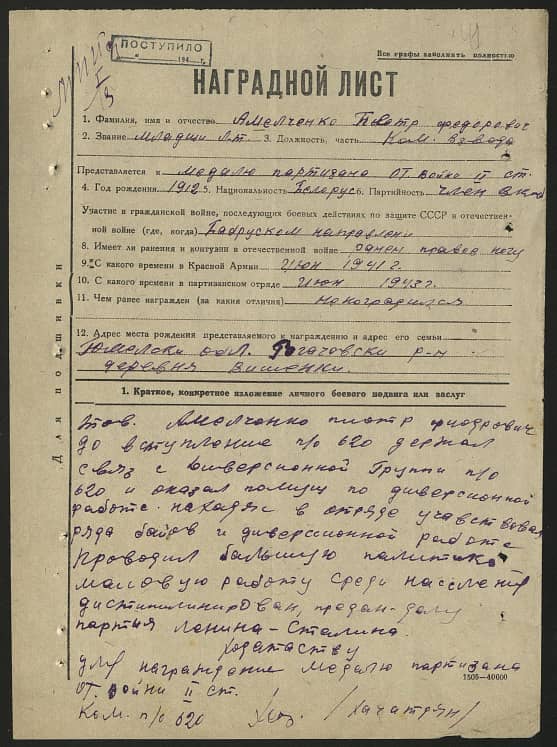 ПОСТУПИЛО
194 г.
Все графы заполнять полностью
НАГРАДНОЙ ЛИСТ
1. Фамилия, имя и отчество Амелченко Пиотр Федорович
2. Звание младши Л.т. 3. Должность, часть Ком. взвода
Представляется к медалю партизана От. войно II ст.
4. Год рождения 1912 5. Национальность Белорус 6. Партийность член вкпб
Участие в гражданской войне, последующих боевых действиях по защите СССР и отечествен-
ной войне (где, когда) Бабруском направлени
8. Имеет ли ранения и контузии в отечественной войне ранен правед ногу
9. С какого времени в Красной Армии Июн 1941 г.
10. С какого времени в партизанском отряде Июн 1943 г.
11. Чем ранее награжден (за какие отличия) ненаградился
12. Адрес места рождения представляемого к награждению и адрес его семьи
Гомелски обл. Рогачовски р-н
деревня Вишенки.
Для подшивки
1. Краткое, конкретное изложение личного боевого подвига или заслуг
тов. Амелченко пиотр фиодрович
до вступление п/о 620 держал
связ с диверсионной Группи п/о
620 и оказал помищ по диверсионной
работе. находяс в отряде учавствовал
ряда байов и диверсионной работе
Проводил большую палитико
масовую работу среди населеня
дистиплинирован, предан-делу
партия Ленина-Сталина.
ходатаству
для награждение медалю партизана
От. войни II ст.
1505—40000
Ком. п/о 620 /Хачатрян/